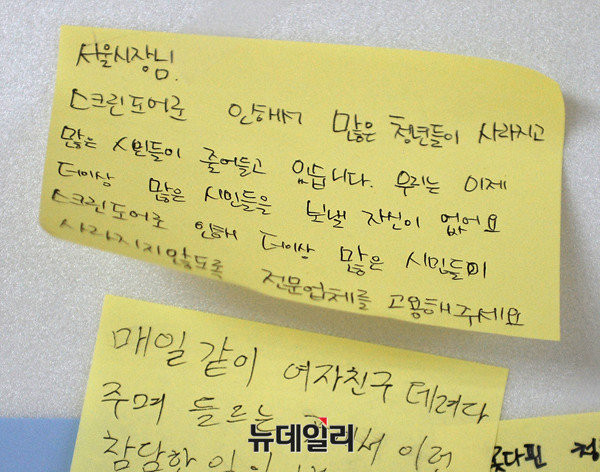 서울시장님.
스크린도어로 인해서 많은 청년들이 사라지고
많은 시민들이 줄어들고 있습니다. 우리는 이제
더이상 많은 시민들을 보낼 자신이 없어요
스크린도어로 인해 더이상 많은 시민들이
사라지지않도록 전문업체를 고용해주세요
매일같이 여자친구 데려다
주며 들르는 에서 이런
뉴데일리
참담한 일이
못다핀